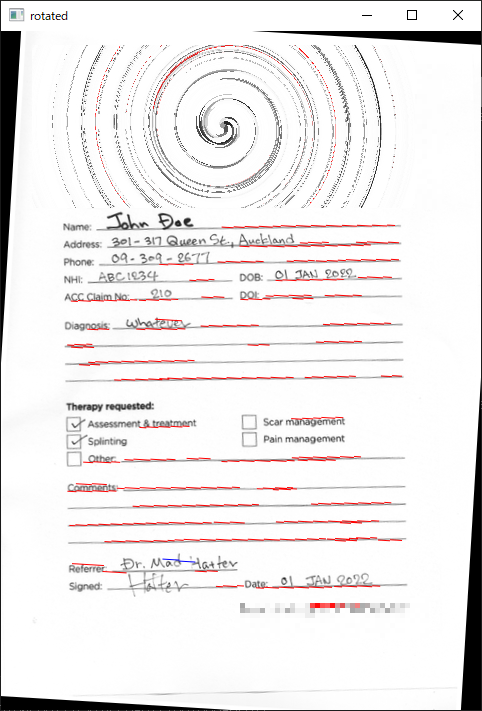 rotated
Name: John Doe
Address: 301-317 Queen St., Auckland
Phone: 09-309-2677
NHI: ABC1234 DOB: 01 JAN 2022
ACC Claim No: 210 DOI:
Diagnosis: Whatever
Therapy requested:
Assessment & treatment Scar management
Splinting Pain management
Other:
Comments:
Referrer: Dr. Mad Hatter
Signed: Hatter Date: 01 JAN 2022